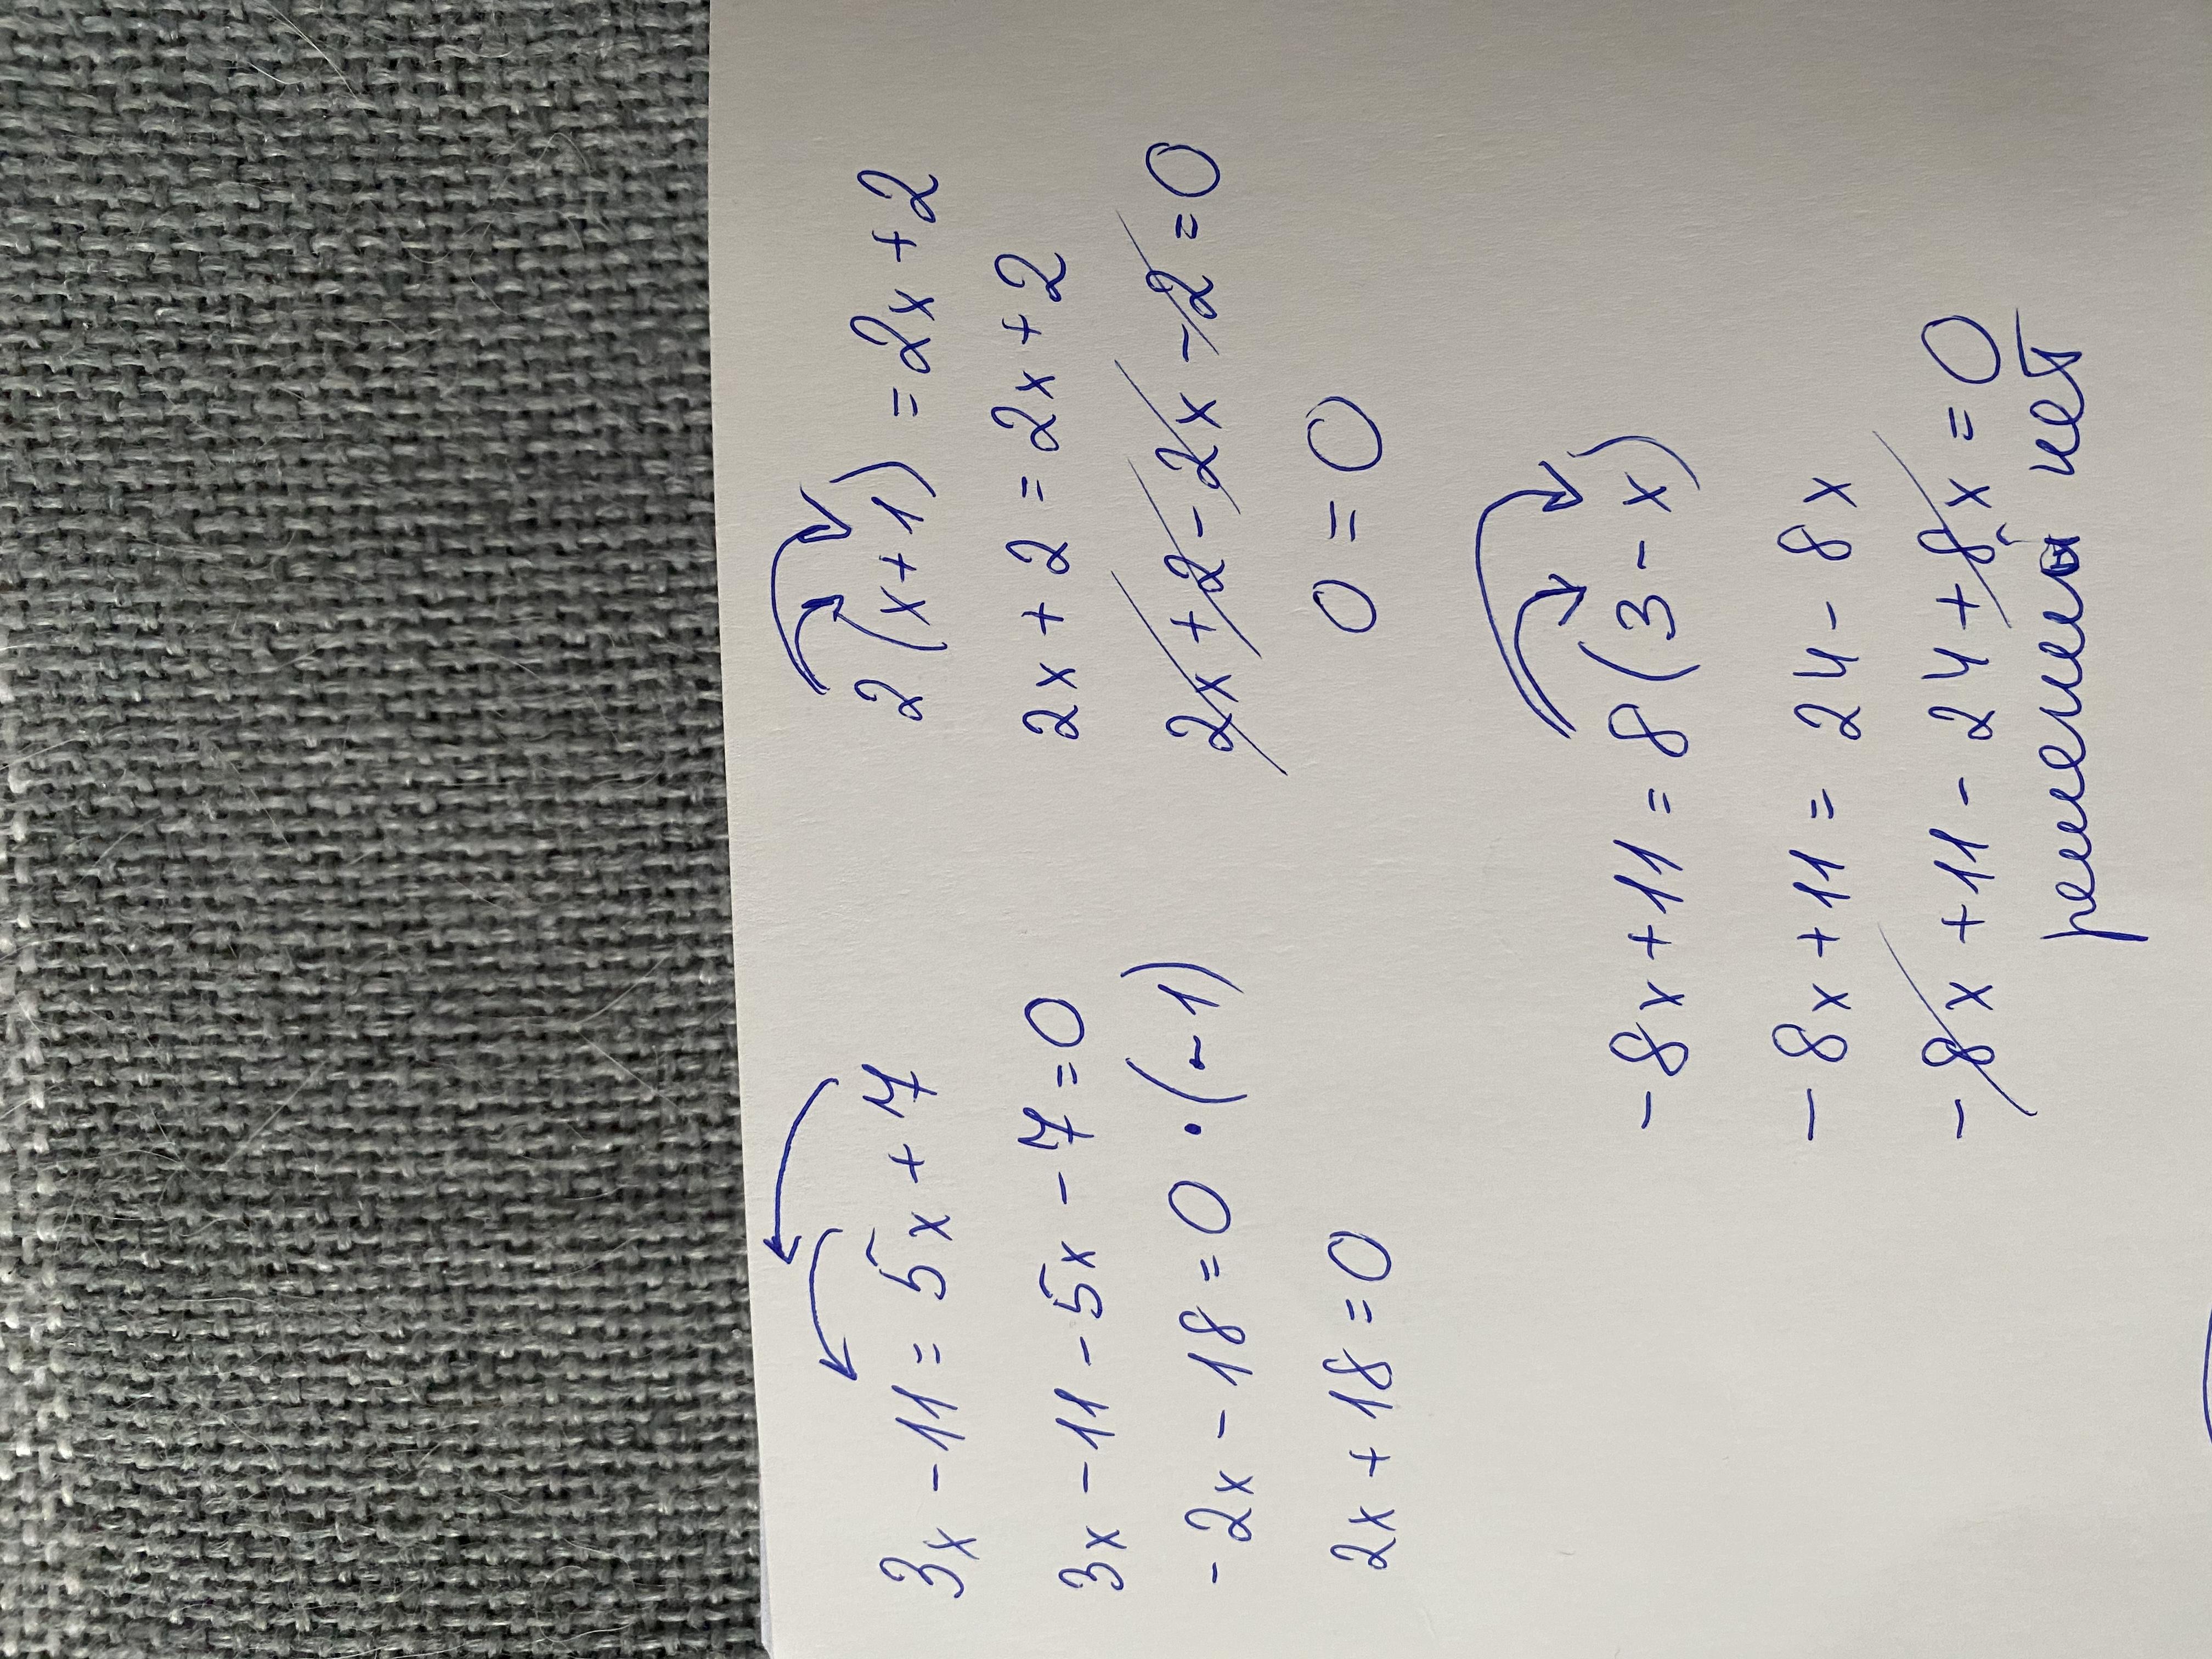 3x - 11 = 5x + 7
3x - 11 - 5x - 7 = 0
-2x - 18 = 0 · (-1)
2x + 18 = 0
2(x+1) = 2x + 2
2x + 2 = 2x + 2
2x + 2 - 2x - 2 = 0
0 = 0
-8x + 11 = 8(3 - x)
-8x + 11 = 24 - 8x
-8x + 11 - 24 + 8x = 0
решений нет